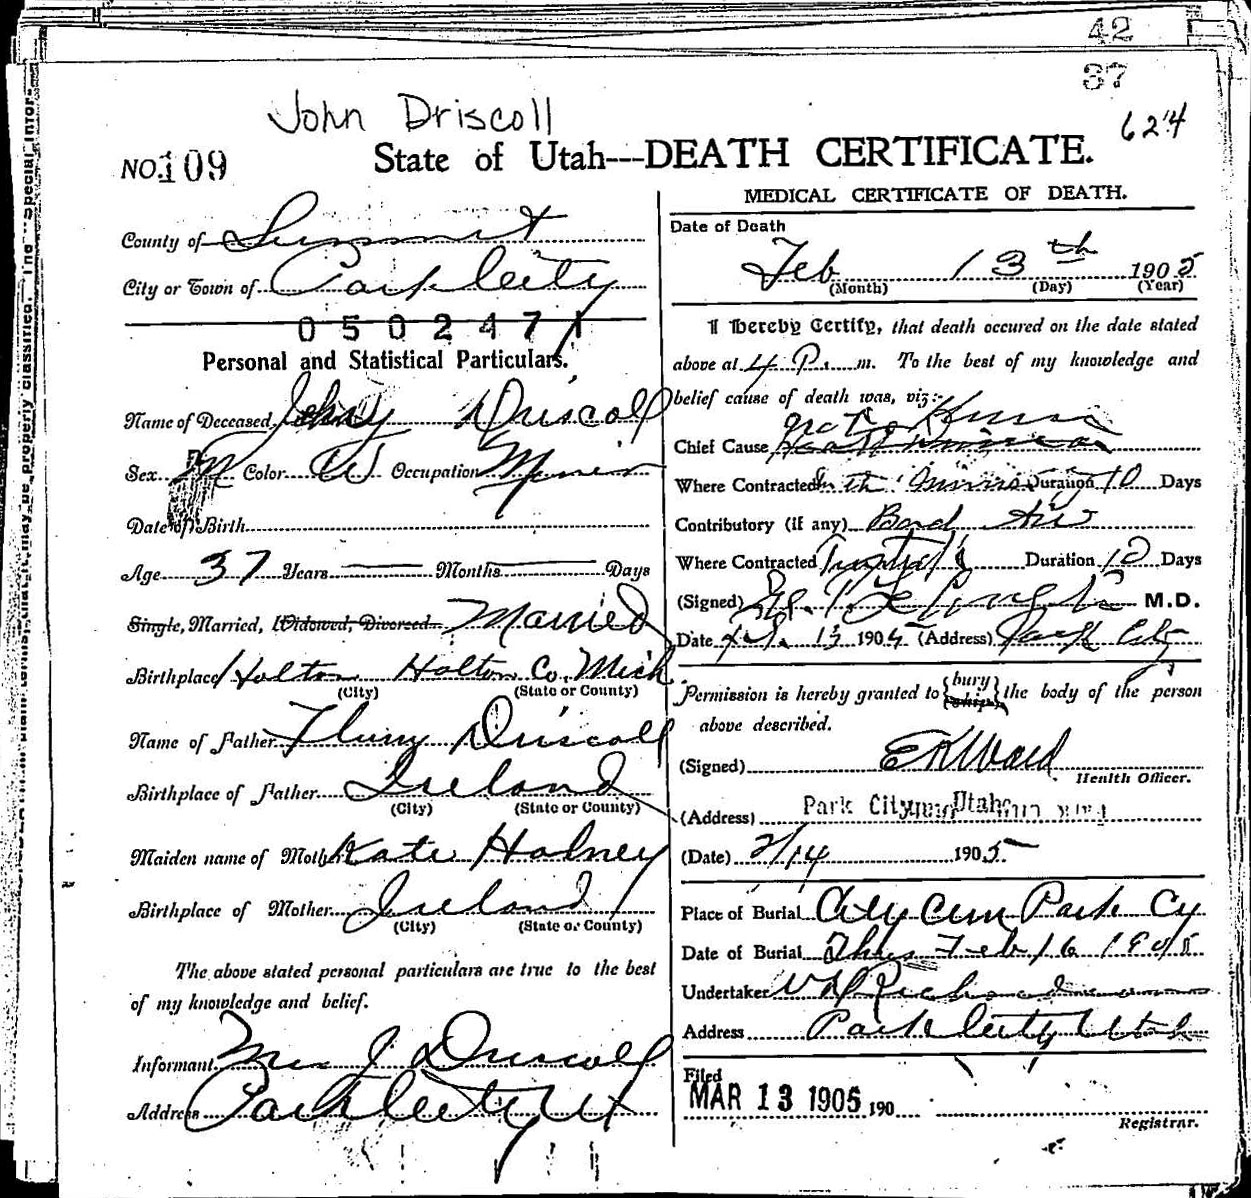 42
37
John Driscoll
624
NO. 109
State of Utah---DEATH CERTIFICATE.
County of Summit
City or Town of Park City
0502471
Personal and Statistical Particulars.
Name of Deceased Johny Driscoll
Sex M Color W Occupation Miner
Date of Birth
Age 37 Years Months Days
Single, Married, Widowed, Divorced Married
Birthplace Holton Holton Co. Mich
(City) (State or County)
Name of Father Driscoll
Birthplace of Father Ireland
(City) (State or County)
Maiden name of Mother Kate Holney
Birthplace of Mother Ireland
(City) (State or County)
The above stated personal particulars are true to the best
of my knowledge and belief.
Informant Mrs J Driscoll
Address Park City Ut
MEDICAL CERTIFICATE OF DEATH.
Date of Death
Feb 13th 1905
(Month) (Day) (Year)
I Hereby Certify, that death occured on the date stated
above at 4 P. m. To the best of my knowledge and
belief cause of death was, viz:-
Chief Cause
Where Contracted In the Mines Duration 10 Days
Contributory (if any) Bad Air
Where Contracted Duration 10 Days
(Signed) M.D.
Date Feb. 13 1905 (Address) Park City
Permission is hereby granted to {bury ship} the body of the person
above described.
(Signed) E K Ward
Health Officer.
(Address) Park City Utah
(Date) 2/14 1905
Place of Burial City Cem Park Cy
Date of Burial Thurs Feb 16 1905
Undertaker
Address Park City Utah
Filed
MAR 13 1905 190
Registrar.